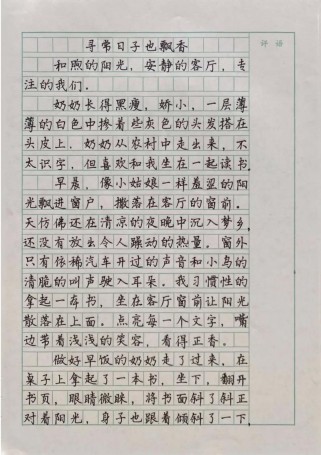 寻常日子也飘香
评 语
和煦的阳光，安静的客厅，专
注的我们．
奶奶长得黑瘦，娇小，一层薄
薄的白色中掺着些灰色的头发搭在
头皮上．奶奶从农村中走出来，不
太识字，但喜欢和我坐在一起读书．
早晨，像小姑娘一样羞涩的阳
光飘进窗户，撒落在客厅的窗前。
天仿佛还在清凉的夜晚中沉入梦乡
还没有放出令人躁动的热量．窗外
只有依稀汽车开过的声音和小鸟的
清脆的叫声驶入耳朵．我习惯性的
拿起一本书，坐在客厅窗前让阳光
散落在上面．点亮每一个文字，嘴
边带着浅浅的笑容，看得正香。
做好早饭的奶奶走了过来．在
桌子上拿起了一本书，坐下，翻开
书页，眼睛微眯，将书面斜了斜正
对着阳光，身子也跟着倾斜了一下